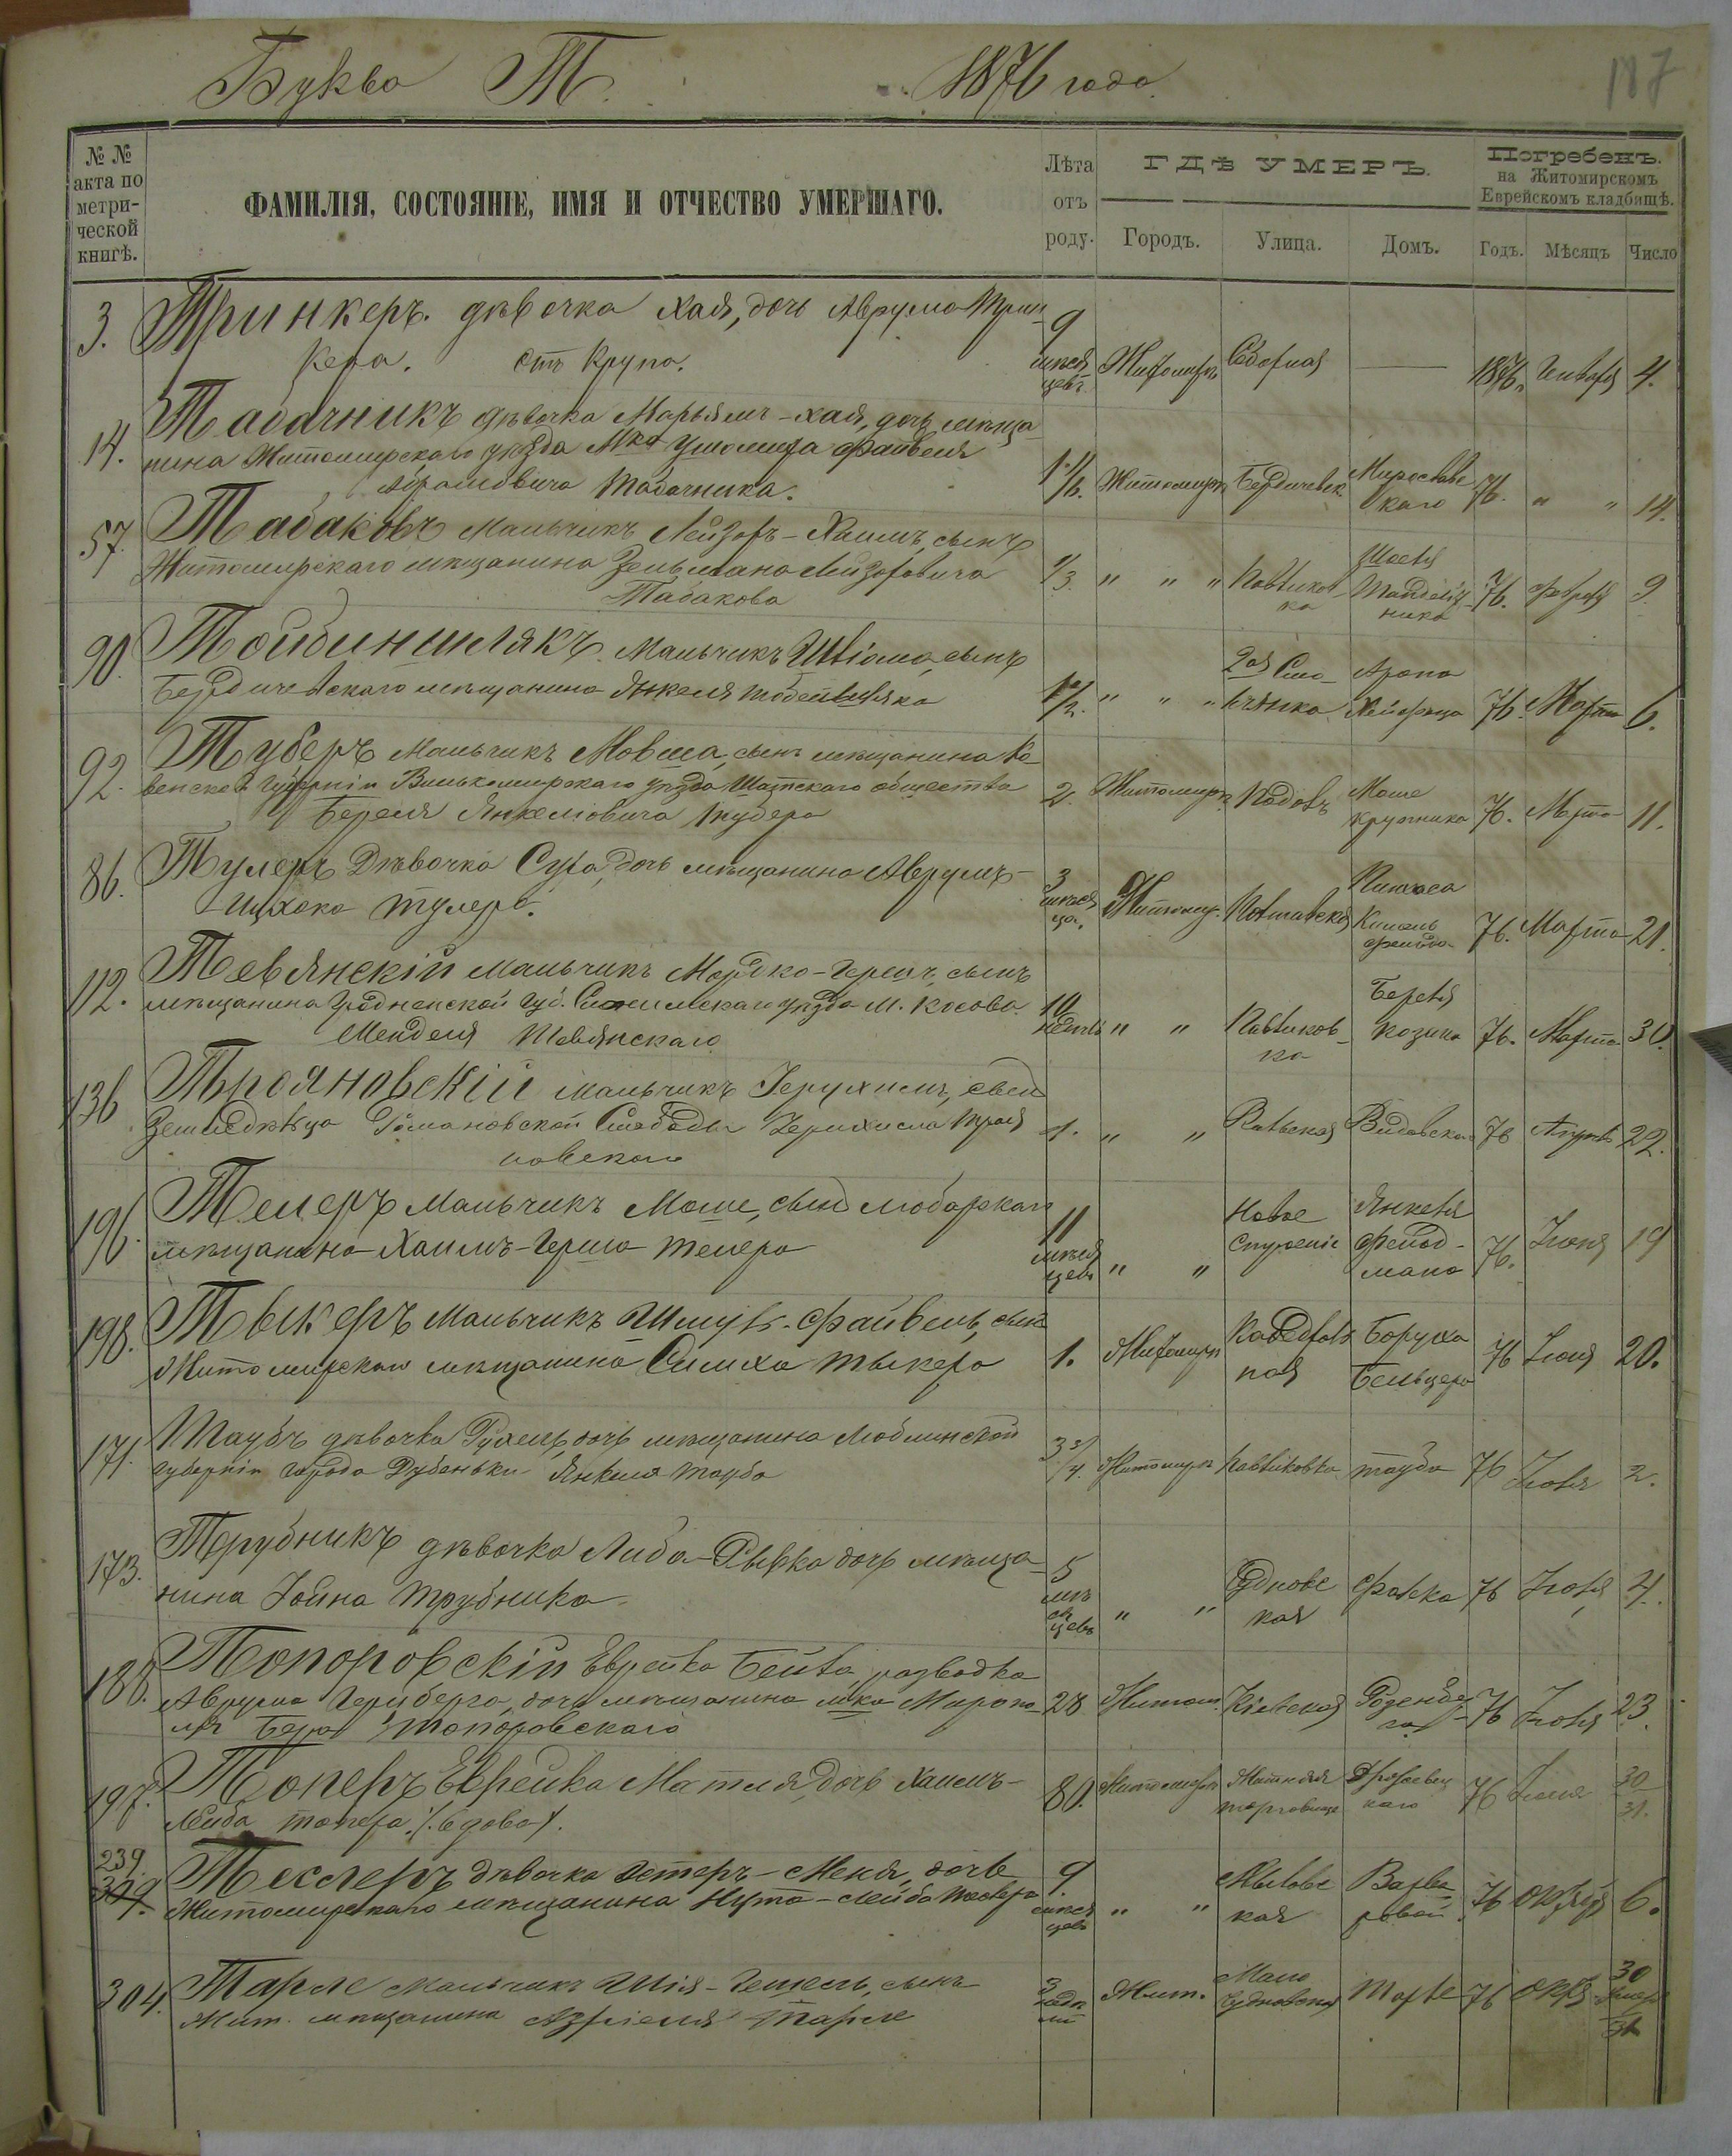 Буква Т. 1876 года. 187
№ № акта по метрической книгѣ.
ФАМИЛІЯ, СОСТОЯНІЕ, ИМЯ И ОТЧЕСТВО УМЕРШАГО.
Лѣта отъ роду.
ГДѢ УМЕРЪ.
Городъ. Улица. Домъ.
Погребенъ.
на Житомирскомъ
Еврейскомъ кладбищѣ.
Годъ. Мѣсяцъ Число
3. Тринкеръ. дѣвочка Хая, дочь Аврума Трин-
кера. отъ Крупа. 9 мѣсяцевъ Житомиръ Соборная — 1876 Января 4.
14. Табачникъ дѣвочка Марьямъ-Хая, дочь мѣща-
нина Житомирскаго уѣзда Мка Ушомира Файвеля
Абрамовича Табачника. Житомиръ Бердичевск 76. " " 14.
57. Табаковъ Мальчикъ Лейзоръ-Хаимъ, сынъ
Житомирскаго мѣщанина Зельмана Лейзоровича
Табакова 1/3. " " " Павликовка 76. Февраля 9.
90. Тойбиншлякъ. Мальчикъ Шліома, сынъ
Бердичевскаго мѣщанина Янкеля " " " Арона Хейфеца 76. Марта 6.
92. Туберъ Мальчикъ Мовша, сынъ мѣщанина Ко-
венской Губерніи Вилькомирскаго уѣзда Шатскаго общества
Береля Янкеліовича Тубера 2. Житомиръ Подолъ Моше Крупника 76. Марта 11.
86. Тулеръ Дѣвочка Сура, дочь мѣщанина Аврумъ-
Ицхока Тулера. 3 мѣсяца. Житомир. Пинхоса 76. Марта 21.
112. Тевянскій Мальчикъ Мордко-Гершъ, сынъ
мѣщанина Гродненской Губ. Слонимскаго уѣзда М. Косова
Менделя Тевянскаго 10 недѣль " " Павликовка Береля Козина 76. Марта 30.
136 Трояновскій мальчикъ Іерухимъ, сынъ
Земледѣльца Романовской Слободы Іерихима Троя
новскаго 1. " " Видавскаго 76 Апрѣля 22.
196. Телеръ Мальчикъ Моше, сынъ Любарскаго
мѣщанина Хаимъ-Герша Телера 11 мѣсяцевъ " " Новое Строеніе Янкеля Фельдмана 76. Іюня 19
198. Тыкеръ Мальчикъ Шмуль-Файвель, сынъ
Житомирскаго мѣщанина Симха Тыкера 1. Житомиръ Кафедральная Боруха Бельцера 76 Іюня 20.
171. Таубъ дѣвочка Рухель, дочь мѣщанина Люблинской
губерніи города Дубеньки Янкеля Тауба 3 3/4. Житомиръ Павликовка Тауба 76 Іюля 2.
173. Трубникъ дѣвочка Либа-Рывка дочь мѣща-
нина Іойна Трубника 5 мѣсяцевъ " " Чудновская Форка 76 Іюля 4.
188. Топоровскій Еврейка Бейла, разводка
Аврума Герцберга, дочь мѣщанина мка Миропо-
ля Бера Топоровскаго 28 Житом. Кіевская 76 Іюля 23.
197. Топеръ Еврейка Матля, дочь Хаимъ-
Лейба Топера (вдова). 80. Житомиръ 76 Іюля 30/31.
239. 309. Теслеръ дѣвочка Эстеръ-Меня, дочь
Житомирскаго мѣщанина Нута-Лейба Теслера 9. мѣсяцевъ " " 76 Октября 6.
304. Тарле Мальчикъ Шія-Гешель, сынъ
Жит. мѣщанина Азріеля Тарле 3 недѣли Жит. Мало Чудновская Тарле 76 Окт. 30